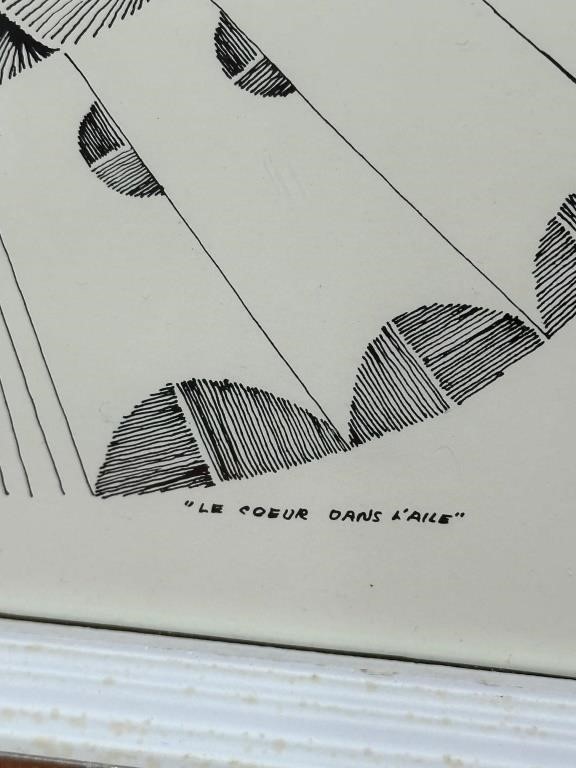 "LE COEUR DANS L'AILE"